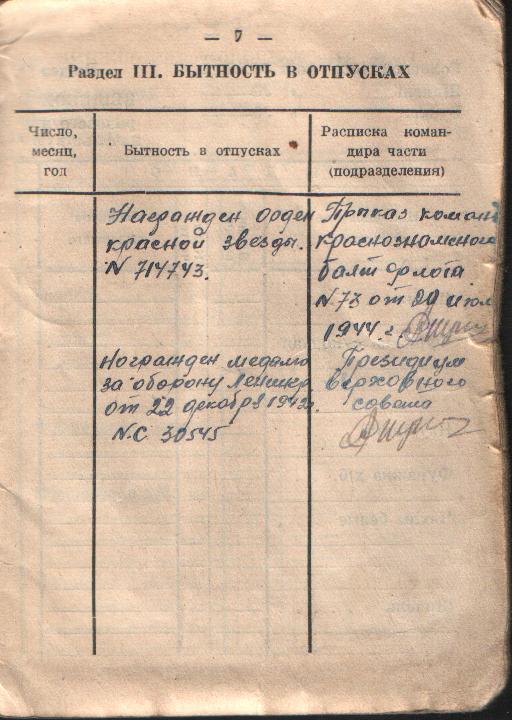 — 7 —
Раздел III. БЫТНОСТЬ В ОТПУСКАХ
Число,
месяц,
год
Бытность в отпусках
Расписка коман-
дира части
(подразделения)
Награжден орден
красной звезды.
N 714743.
Приказ команд
краснознаменого
балт флота
N.73 от 20 июл
1944 г.
Награжден медалю
за оборону Ленингр.
от 22 декабря 1942г.
N.С 30545
Президиум
верховного
совета